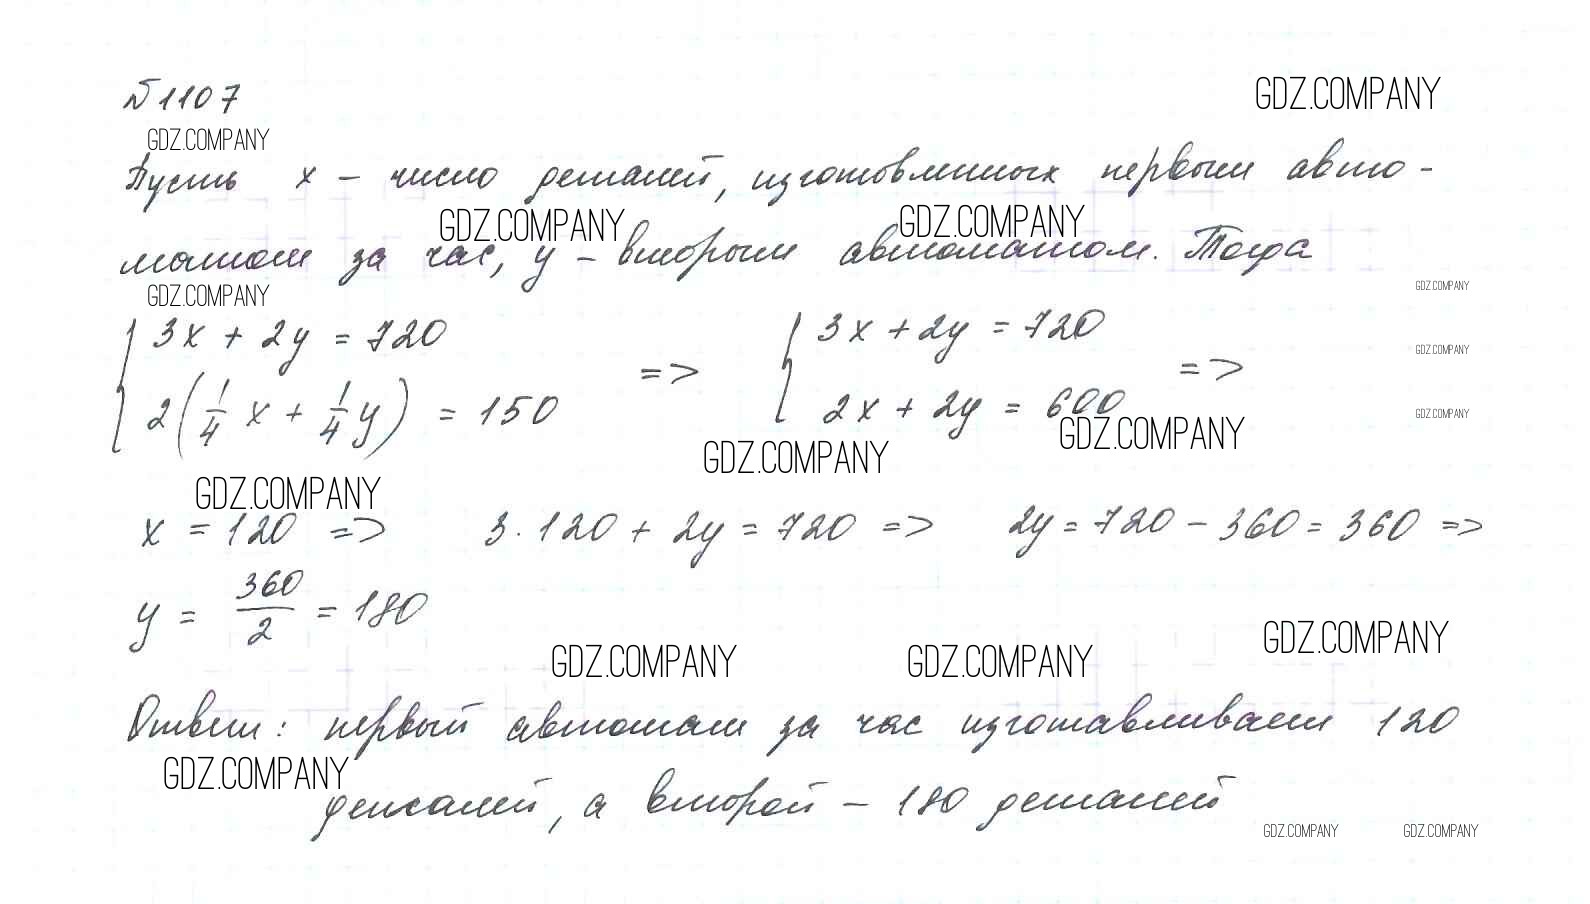 №1107
GDZ.COMPANY
GDZ.COMPANY
Пусть x – число деталей, изготовленных первым авто-
GDZ.COMPANY GDZ.COMPANY
матом за час, y – вторым автоматом. Тогда
GDZ.COMPANY GDZ.COMPANY
{ 3x + 2y = 720 => { 3x + 2y = 720 =>
GDZ.COMPANY
{ 2(1/4 x + 1/4 y) = 150 { 2x + 2y = 600
GDZ.COMPANY
GDZ.COMPANY GDZ.COMPANY
GDZ.COMPANY
x = 120 => 3 · 120 + 2y = 720 => 2y = 720 – 360 = 360 =>
y = 360/2 = 180
GDZ.COMPANY GDZ.COMPANY GDZ.COMPANY
Ответ: первый автомат за час изготавливает 120
GDZ.COMPANY
деталей, а второй – 180 деталей
GDZ.COMPANY GDZ.COMPANY